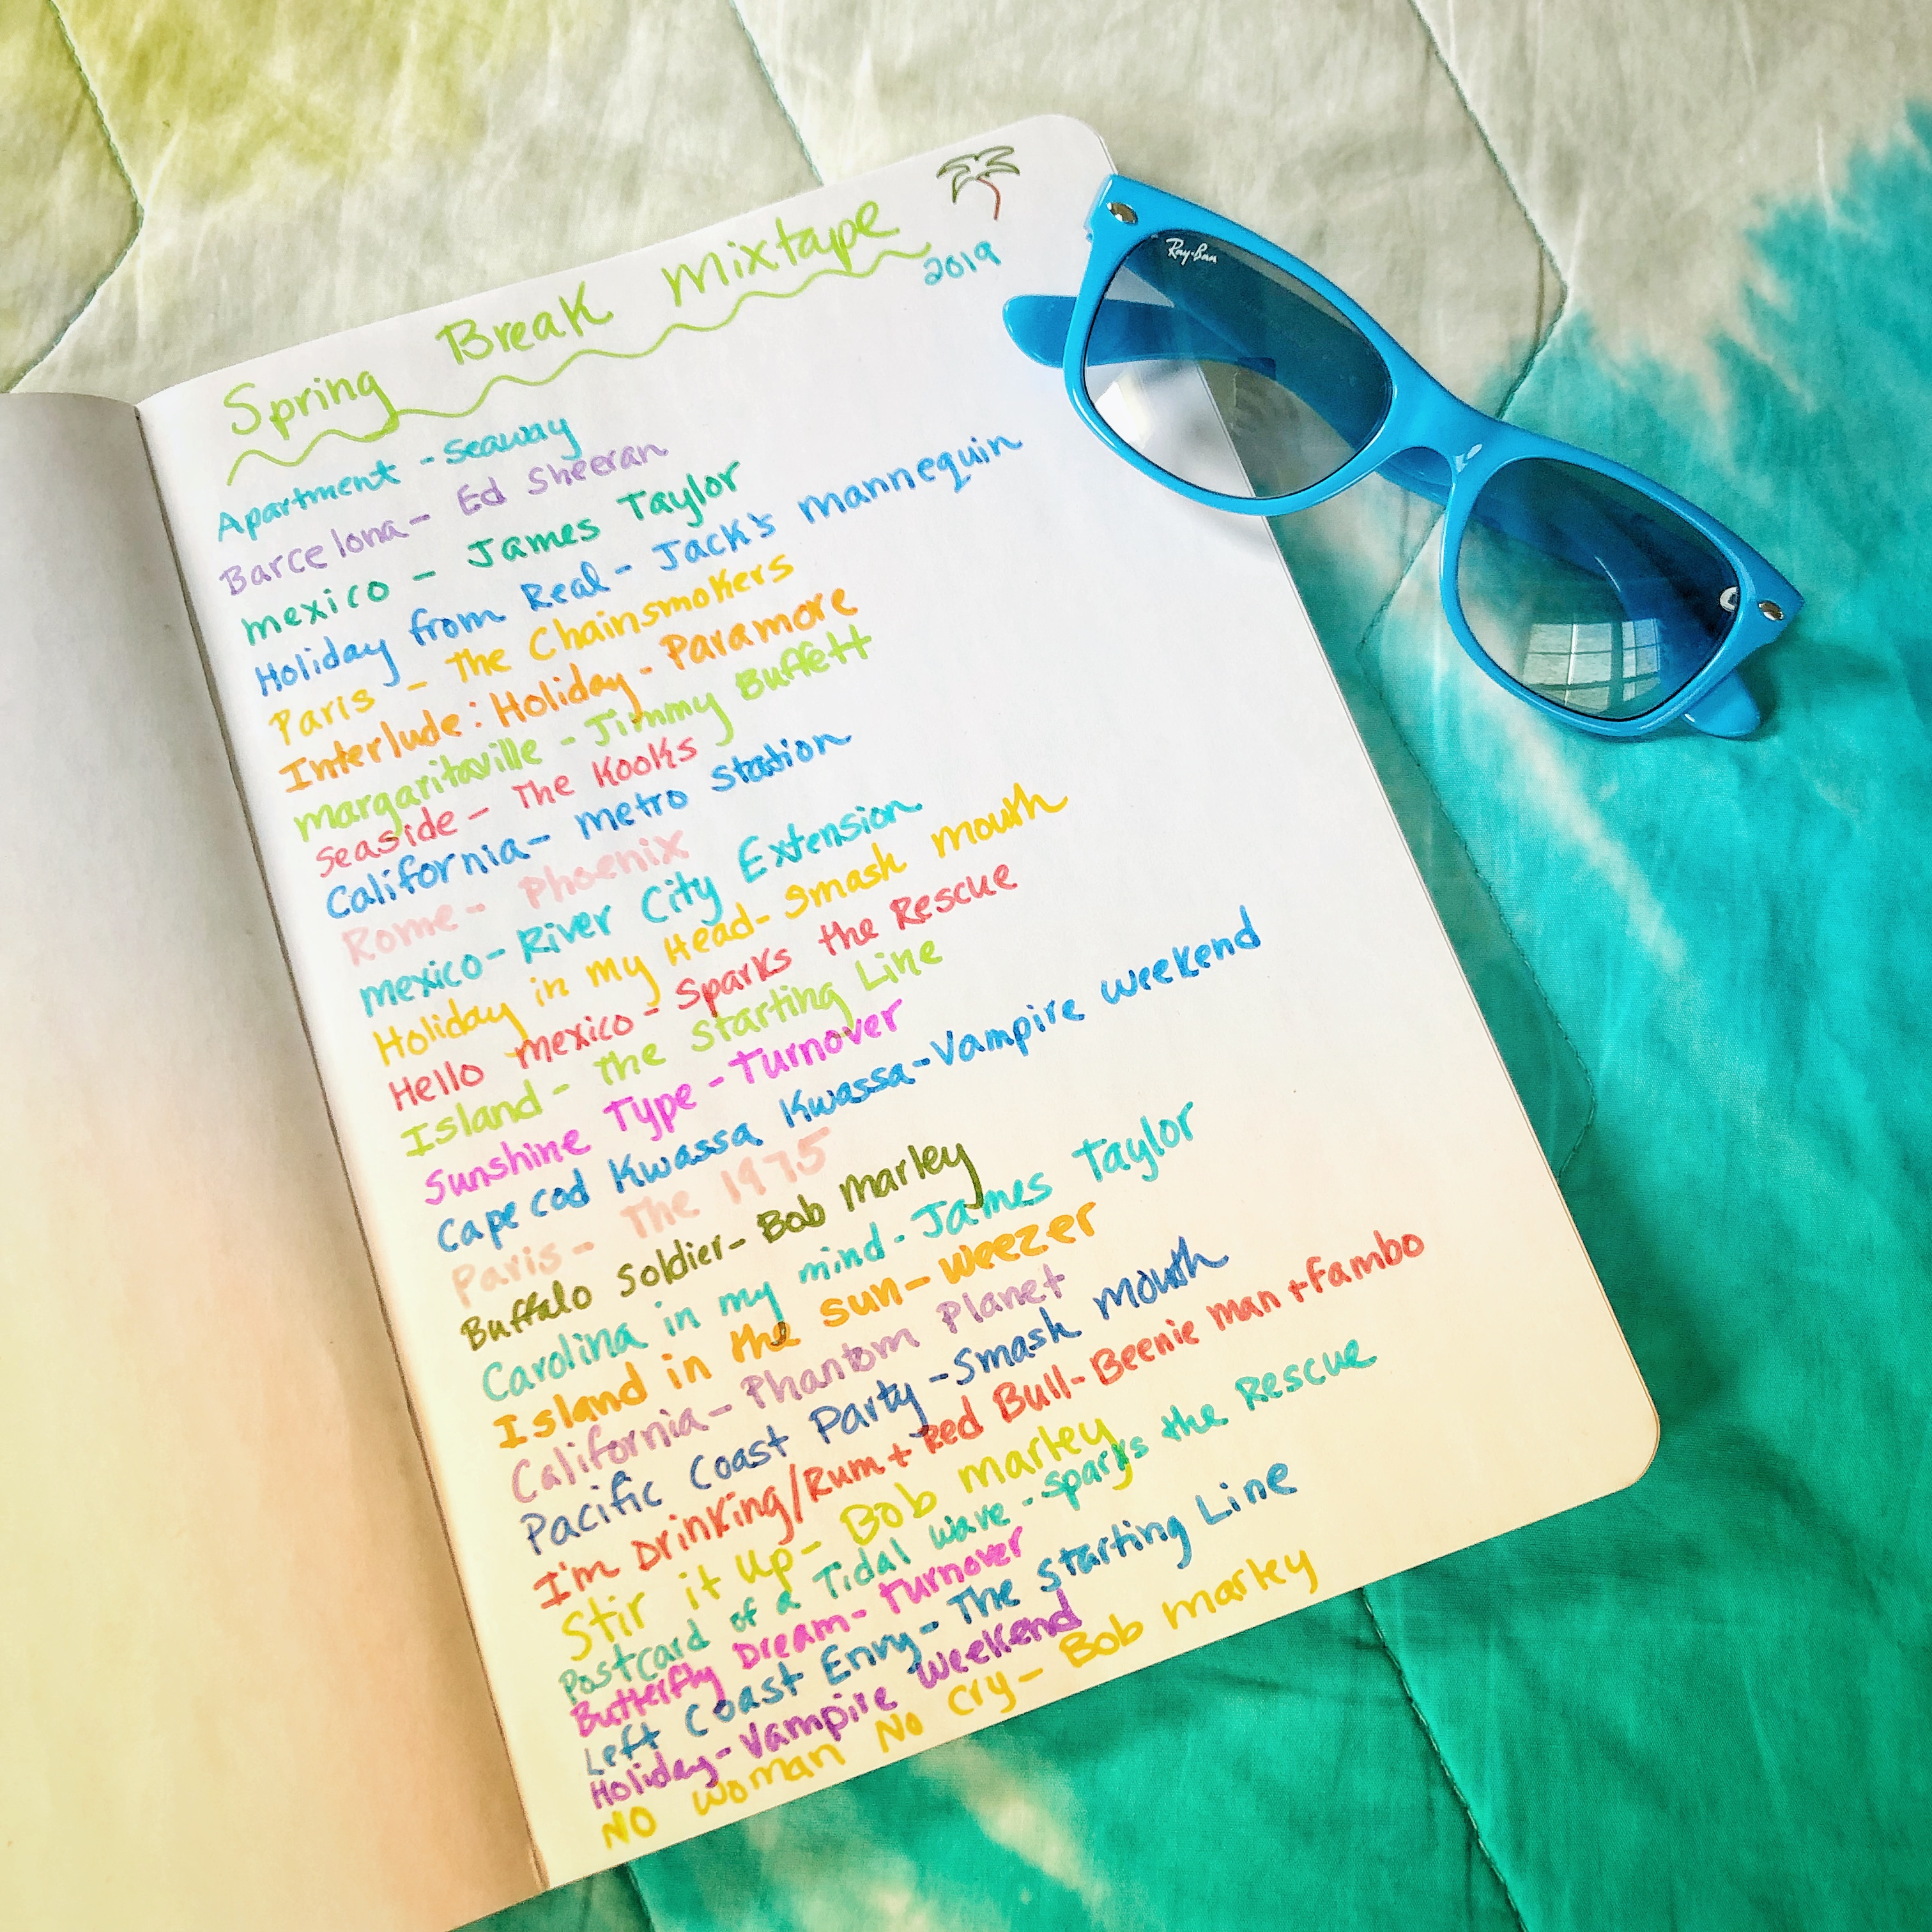 Spring Break Mixtape
2019
Apartment - Seaway
Barcelona - Ed Sheeran
Mexico - James Taylor
Holiday from Real - Jack's mannequin
Paris - The Chainsmokers
Interlude: Holiday - Paramore
Margaritaville - Jimmy Buffett
Seaside - The Kooks
California - Metro Station
Rome - Phoenix
Mexico - River City Extension
Holiday in my Head - Smash Mouth
Hello Mexico - Sparks the Rescue
Island - The Starting Line
Sunshine Type - Turnover
Cape Cod Kwassa Kwassa - Vampire Weekend
Paris - The 1975
Buffalo Soldier - Bob Marley
Carolina in my mind - James Taylor
Island in the sun - Weezer
California - Phantom Planet
Pacific Coast Party - Smash Mouth
I'm Drinking/Rum + Red Bull - Beenie Man + Fambo
Stir it Up - Bob Marley
Postcard of a Tidal Wave - Sparks the Rescue
Butterfly Dream - Turnover
Left Coast Envy - The Starting Line
Holiday - Vampire Weekend
No Woman No Cry - Bob Marley
Ray-Ban